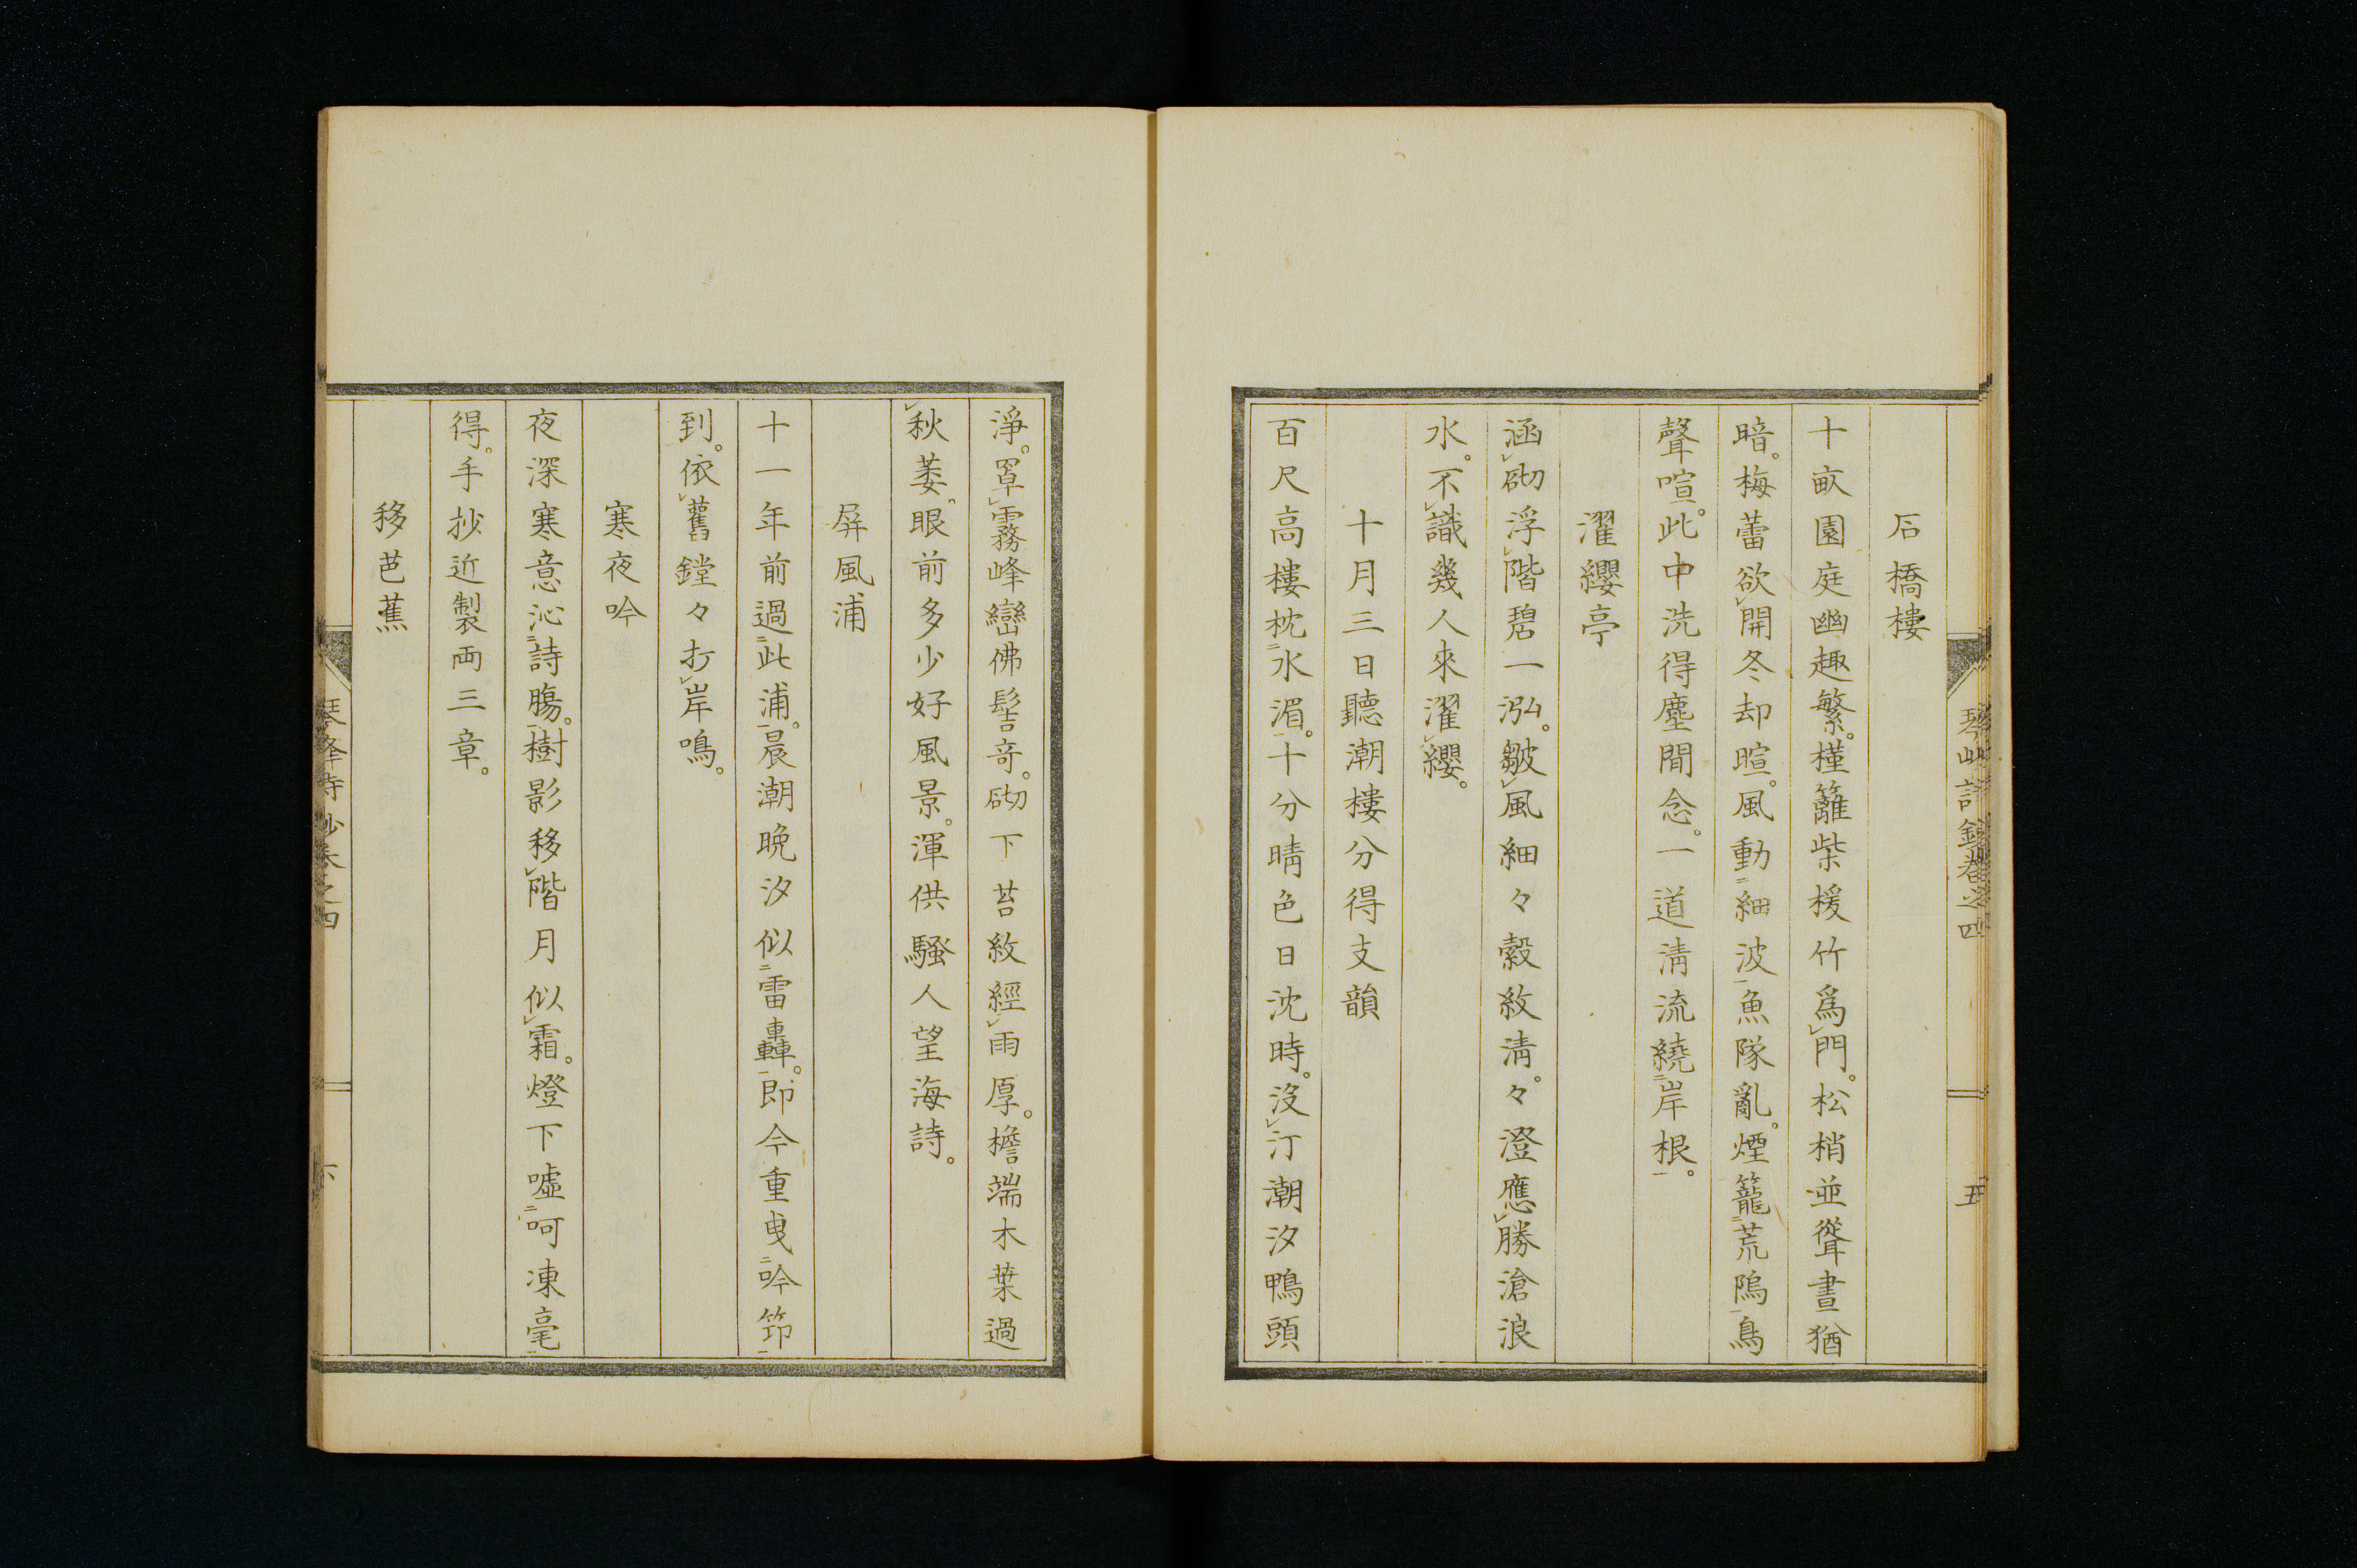 石橋樓
十畝園庭幽趣繁。槿籬柴援竹爲門。松梢並聳晝猶
暗。梅蕾欲開冬却暄。風動細波魚隊亂。煙籠荒隝鳥
聲喧。此中洗得塵間念。一道淸流繞岸根。
濯纓亭
涵砌浮階碧一泓。皺風細々縠紋淸。々澄應勝滄浪
水。不識幾人來濯纓。
十月三日聽潮樓分得支韻
百尺高樓枕水湄。十分晴色日沈時。沒汀潮汐鴨頭
淨。罩霧峰巒佛髻奇。砌下苔紋經雨厚。檐端木葉過
秋萎。眼前多少好風景。渾供騷人望海詩。
屏風浦
十一年前過此浦。晨潮晩汐似雷轟。即今重曳吟筇
到。依舊鏜々打岸鳴。
寒夜吟
夜深寒意沁詩膓。樹影移階月似霜。燈下噓呵凍毫
得。手抄近製両三章。
移芭蕉
琴峰詩鈔卷之四
五
六